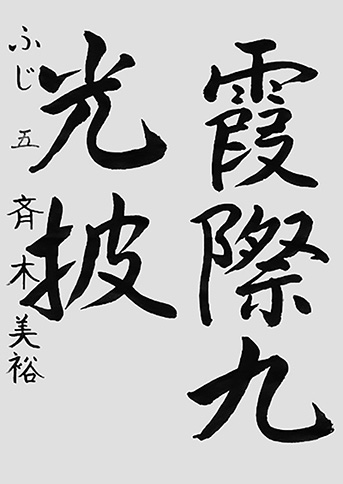 霞際九
光披
ふじ 五 斉木美裕